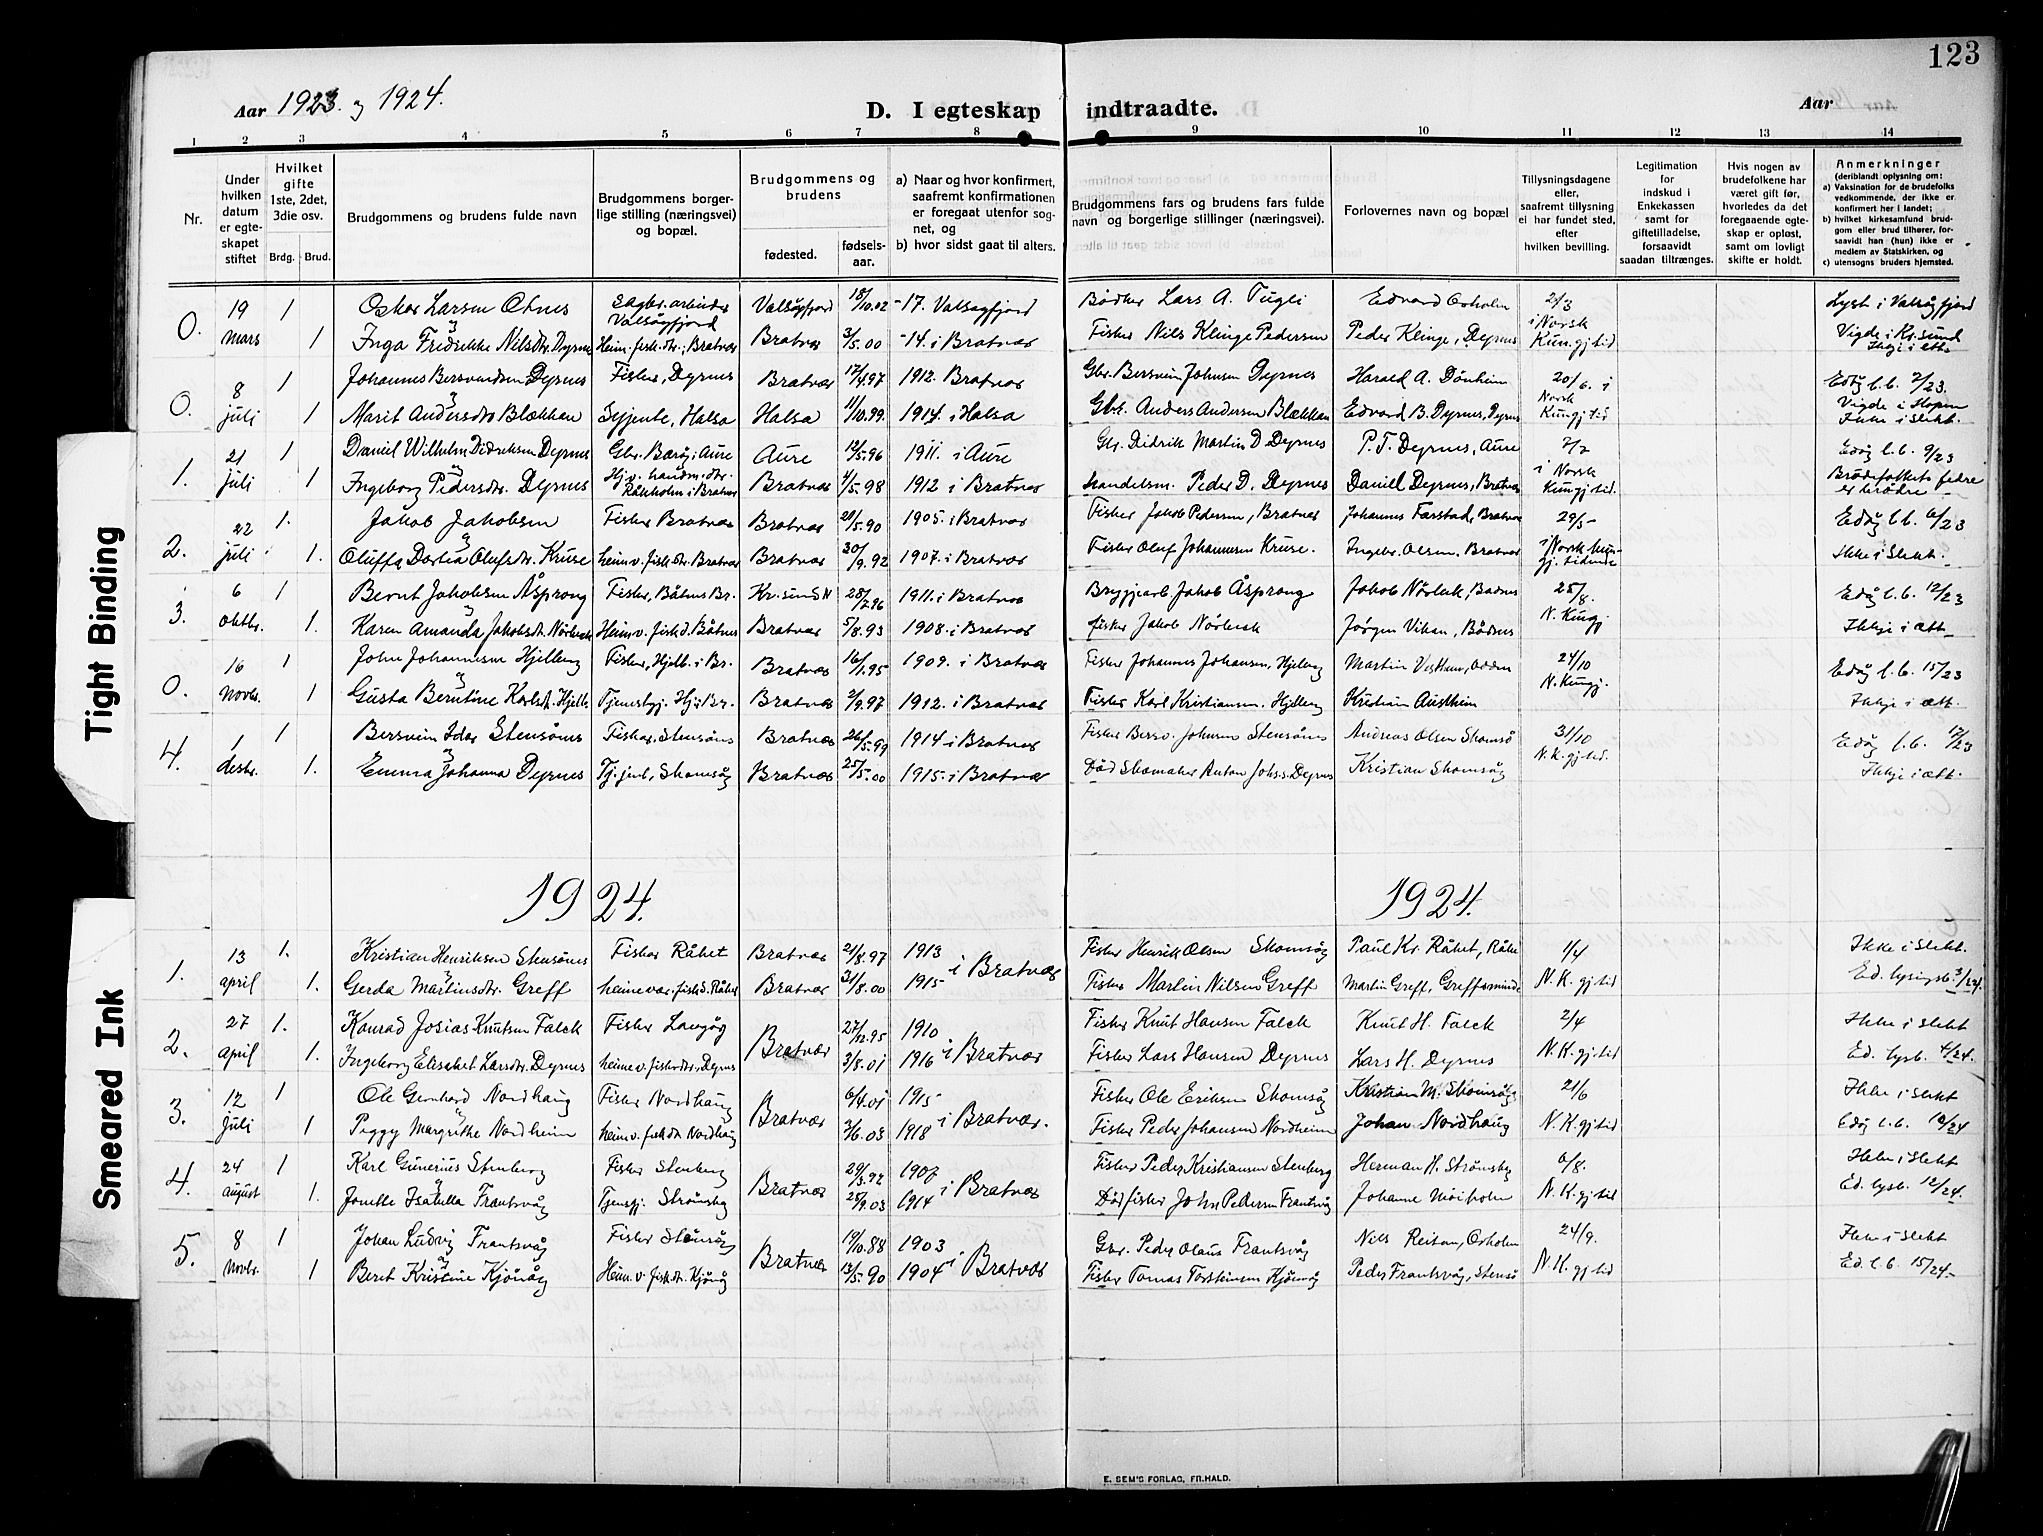 123
Aar 1923. og 1924.
D. I egteskap indtraadte.
Aar
1 2 3 4 5 6 7 8 9 10 11 12 13 14
Nr.
Under hvilken datum er egteskapet stiftet
Hvilket gifte 1ste, 2det, 3die osv.
Brdg. Brud.
Brudgommens og brudens fulde navn
Brudgommens borgerlige stilling (næringsvei) og bopæl.
Brudgommens og brudens
fødested.
fødselsaar.
a) Naar og hvor konfirmert, saafremt konfirmationen er foregaat utenfor sognet, og
b) hvor sidst gaat til alters.
Brudgommens fars og brudens fars fulde navn og borgerlige stillinger (næringsvei).
Forlovernes navn og bopæl
Tillysningsdagene eller, saafremt tillysning ei har fundet sted, efter hvilken bevilling.
Legitimation for indskud i Enkekassen samt for giftetilladelse, forsaavidt saadan tiltrænges.
Hvis nogen av brudefolkene har været gift før, hvorledes da det foregaaende egteskap er opløst, samt om lovligt skifte er holdt.
Anmerkninger (deriblandt oplysning om:
a) Vaksination for de brudefolks vedkommende, der ikke er konfirmert her i landet;
b) hvilket kirkesamfund brudgom eller brud tilhører, forsaavidt han (hun) ikke er medlem av Statskirken, og
c) utensogns bruders hjemsted.
0. 19 mars 1 Oskar Larsen Otnes Sagbr. arbeider Valsøyfjord Valsøyfjord 18/10.02 -17. Valsøyfjord Bødker Lars A. Fugli Edvard Orholm 2/3 Lyst i Valsøyfjord
1 Inga Fredrikke Nilsdtr. Dyrnes Heim. fisk. dtr., Bratvær Bratvær 3/5.00 -14. i Bratvær Fisker Nils Klinge Pedersen Peder Klinge, Dyrnes i Norsk Kun.gj.tid Vigde i Kr.sund Ikkje i ætt.
0. 8 juli 1 Johannes Bersvendsen Dyrnes Fisker, Dyrnes Bratvær 17/4.97 1912. Bratvær Gbr. Bersvein Johnsen Dyrnes Harald A. Dønheim 20/6. i Edøy l.b. 7/23.
1 Marit Andersdtr Blækkan Syjente, Halsa Halsa 11/10.99. 1914. i Halsa Gbr. Anders Andersen Blækkan Edvard B. Dyrnes, Dyrnes Norsk Kungj.tid Vigde i Hopen Ikke i slekt.
1. 21 juli 1 Daniel Wilhelm Didreksen Dyrnes Gbr. Barøy i Aure Aure 12/5.96 1911. i Aure Gbr. Didrik Martin D Dyrnes P. T. Dyrnes, Aure 7/7 Edøy l.b. 9/23
1 Ingeborg Pedersdtr. Dyrnes Hj.v. handm. dtr. Råkholm i Bratvær Bratvær 4/5.98 1912 i Bratvær Handelsm. Peder D. Dyrnes Daniel Dyrnes, Bratvær i Norsk Kungj.tid. Brødefolkets fedre er brødre
2. 22 juli 1. Jakob Jakobsen Fisker Bratvær Bratvær 20/5.90 1905. i Bratvær Fisker Jakob Pedersen, Bratvær Johannes Farstad, Bratvær 29/5 Edøy l.b. 6/23
1. Oluffa Dortea Olufsdtr. Kruse heimv. fisk.dtr. Bratvær Bratvær 30/9.92 1907. i Bratvær Fisker Oluf Johannesen Kruse. Ingebr. Olsen, Bratvær i Norsk kungj. tidende Ikke i slekt.
3. 6 oktbr. 1 Bernt Jakobsen Åsprong Fisker, Båtnes Br. Kr.sund N 28/7.96 1911. i Bratvær Bryggjearb Jakob Åsprong Jakob Nörbek, Badnes 25/8. Edøy l.b. 12/23
1. Karen Amanda Jakobsdt. Nörbek Heim v. fisk d. Båtnes Bratvær 5/8.93 1908. i Bratvær fisker Jakob Nörbek Jørgen Vikan, Bådnes N. Kungj. Ikkje i ætt
0. 16 Novbr. 1 John Johannesen Hjelleng Fisker, Hjelb. i Br. Bratvær 16/1.95 1909. i Bratvær Fisker Johannes Johansen, Hjelleng Martin Vestheim, Odden 24/10 Edøy l.b. 15/23
1 Gusta Berntine Karlsdt. Hjelle Tjenestpj. Hj. i Br. Bratvær 2/9.97 1912. i Bratvær Fisker Karl Kristiansen, Hjelleng Kristian Austheim N. Kungj. Ikkje i ætt.
4. 1 desbr. 1 Bersvein Idar Stensönes Fisker, Stensönes Bratvær 26/5.99 1914 i Bratvær Fisker Bersv. Johnsen Stensönes Andreas Olsen Skomsö 31/10 Edøy l.b. 17/23
1. Emma Johanna Dyrnes Tj.jent, Skomsøy Bratvær 25/5.00 1915 i Bratvær Död Skomaker Anton Johs.s. Dyrnes Kristian Skomsøy N.K.gj.tid. Ikkje i ætt.
1924. 1924.
1. 13 april 1. Kristian Henriksen Stensönes Fisker Råket Bratvær 21/8.97 1913 i Bratvær Fisker Henrik Olsen Skomsøy Paul Kr. Råket, Råke 1/4 Ikke i slekt.
1. Gerda Martinsdtr. Greff heimevær. fisk d. Råket Bratvær 31/8.00 1915 Fisker Martin Nilsen Greff Martin Greff, Greffsminde N. K. gj.tid Ed. lysingsb. 3/24.
2. 27 april 1. Konrad Josias Knutsen Falck Fisker Langøy Bratvær 27/12.95 1910 i Bratvær Fisker Knut Hansen Falck Knut H. Falck 2/4 Ikke i slekt
1. Ingeborg Elisabet Larsdtr. Dyrnes heime v. fiskerdtr., Dyrnes 3/8.01 1916 Fisker Lars Hansen Dyrnes Lars H. Dyrnes N. K. gj.tid Ed. lysb. 4/24.
3. 12 juli 1 Ole Gerhard Nordhaug Fisker Nordhaug Bratvær 6/4.01 1915 i Bratvær. Fisker Ole Eriksen Skomsøy Kristian M. Skomsøy 21/6 Ikke i slekt
1 Peggy Margrethe Nordheim heim v. fisk dt Nordhaug 3/6.03 1918 Fisker Peder Johansen Nordheim Johan Nordhaug N. K. gj.tid Edøy l.b. 10/24
4. 24 august 1 Karl Gunerius Stenberg Fisker Stenberg Bratvær 29/3.92 1907 i Bratvær Fisker Peder Kristiansen Stenberg Herman H. Strömsøy 6/8. Ikke i slekt
1. Jonette Isabella Frantsvåg Tjenestpj. Strömsøy 25/9.03 1914 Död fisker John Pedersen Frantsvåg Johanne Moiholm N. K. gj.tid Ed. lysb. 12/24.
5. 8 Novbr. 1 Johan Ludvig Frantsvåg Fisker Stensøy Bratvær 19/10.88 1903 i Bratvær Gbr. Peder Olaus Frantsvåg Nils Reitan, Orholm 24/9. Ikke i slekt
1 Beret Kristine Kjönøy Heim v. fisk dt. Kjönøy 13/5.90 1904 Fisker Tomas Torstensen Kjönøy Peder Frantsvåg, Stensø N. K. gj.tid Ed. l.b. 15/24.
E. SEM'S FORLAG, FR.HALD.
Tight Binding
Smeared Ink